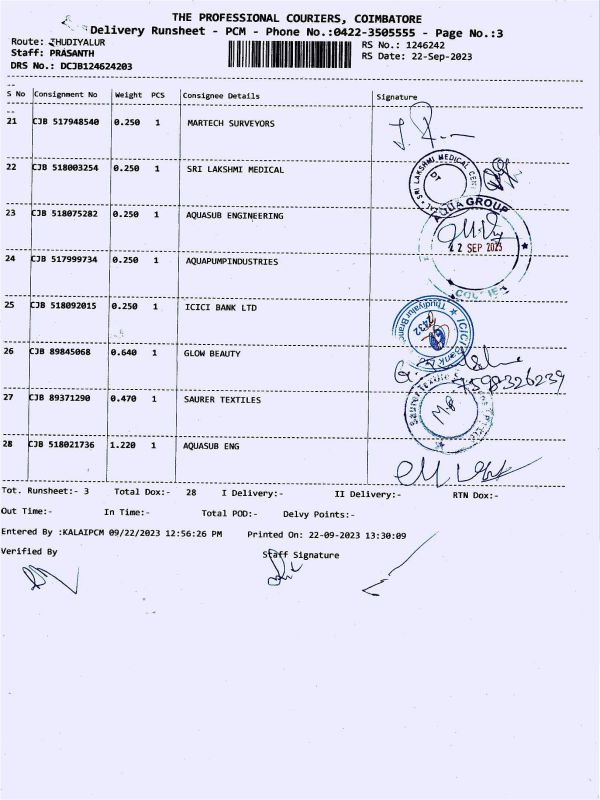 THE PROFESSIONAL COURIERS, COIMBATORE
Delivery Runsheet - PCM - Phone No.:0422-3505555 - Page No.:3
Route: THUDIYALUR
RS No.: 1246242
Staff: PRASANTH
RS Date: 22-Sep-2023
DRS No.: DCJB124624203
S No Consignment No Weight PCS Consignee Details Signature
21 CJB 517948540 0.250 1 MARTECH SURVEYORS
22 CJB 518003254 0.250 1 SRI LAKSHMI MEDICAL
SRI LAKSHMI MEDICAL
DT
23 CJB 518075282 0.250 1 AQUASUB ENGINEERING
AQUA GROUP
22 SEP 2023
24 CJB 517999734 0.250 1 AQUAPUMPINDUSTRIES
25 CJB 518092015 0.250 1 ICICI BANK LTD
ICICI Bank
Thudiyalur Branch
2432
26 CJB 89845068 0.640 1 GLOW BEAUTY
7598326239
27 CJB 89371290 0.470 1 SAURER TEXTILES
Saurer Textile
28 CJB 518021736 1.220 1 AQUASUB ENG
Tot. Runsheet:- 3 Total Dox:- 28 I Delivery:- II Delivery:- RTN Dox:-
Out Time:- In Time:- Total POD:- Delvy Points:-
Entered By :KALAIPCM 09/22/2023 12:56:26 PM Printed On: 22-09-2023 13:30:09
Verified By Staff Signature